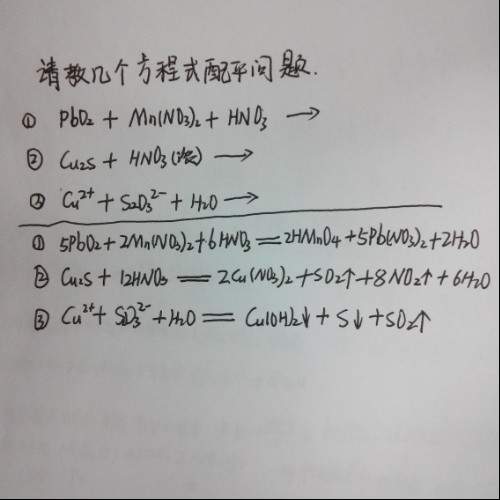 请教几个方程式配平问题.
① PbO₂ + Mn(NO₃)₂ + HNO₃ →
② Cu₂S + HNO₃(浓) →
③ Cu²⁺ + S₂O₃²⁻ + H₂O →
① 5PbO₂ + 2Mn(NO₃)₂ + 6HNO₃ = 2HMnO₄ + 5Pb(NO₃)₂ + 2H₂O
② Cu₂S + 12HNO₃ = 2Cu(NO₃)₂ + SO₂↑ + 8NO₂↑ + 6H₂O
③ Cu²⁺ + S₂O₃²⁻ + H₂O = Cu(OH)₂↓ + S↓ + SO₂↑